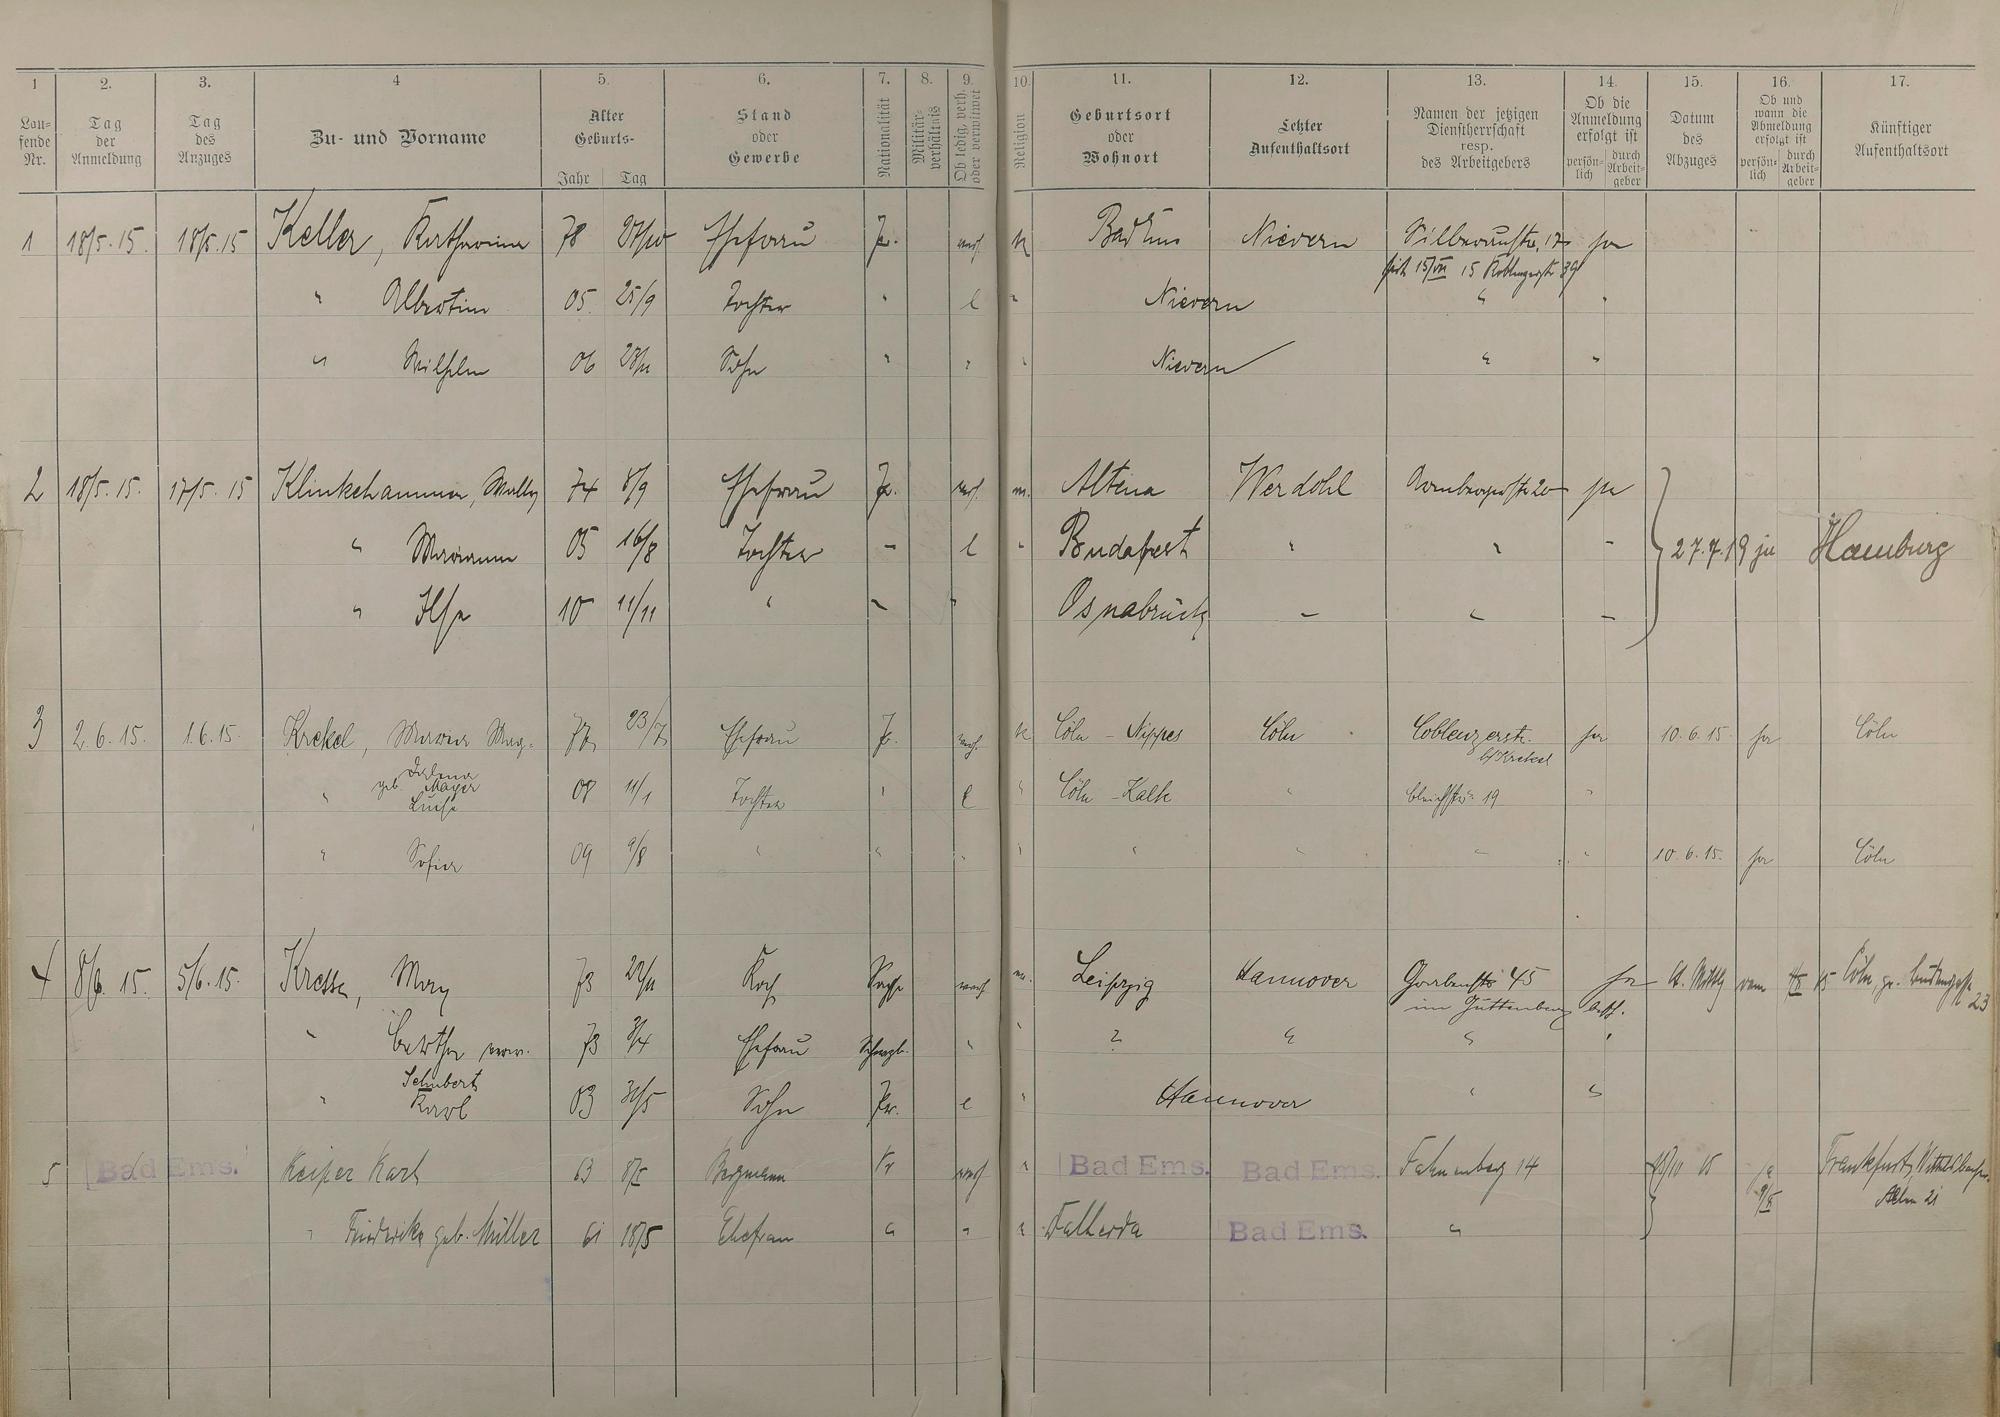 1 2. 3. 4 5. 6. 7. 8. 9. 10. 11. 12. 13. 14. 15. 16. 17.
Lau-
fende
Nr.
Tag
der
Anmeldung
Tag
des
Anzuges
Zu- und Vorname
Alter
Geburts-
Jahr Tag
Stand
oder
Gewerbe
Nationalität
Militär-
verhältnis
Ob ledig, verh.
oder verwitwet
Religion
Geburtsort
oder
Wohnort
Letzter
Aufenthaltsort
Namen der jetzigen
Dienstherrschaft
resp.
des Arbeitgebers
Ob die
Anmeldung
erfolgt ist
persön-
lich
durch
Arbeit-
geber
Datum
des
Abzuges
Ob und
wann die
Abmeldung
erfolgt ist
persön-
lich
durch
Arbeit-
geber
Künftiger
Aufenthaltsort
1 18/5. 15. 18/5. 15 Keller, Katharina 78 27/10 Ehefrau Pr. verh. k Bad Ems Nievern Silberaustr. 17 ja
seit 15/VII 15 39
" Albertine 05. 25/9 Tochter " l " Nievern " "
" Wilhelm 06 Sohn " " " Nievern " "
2 18/5. 15. 17/5. 15 Klinkehammer, Wally 74 8/9 Ehefrau Pr. verh. Altena Werdohl 20 ja
" Marianne 05 16/8 Tochter - l " Budapest " " - 27.7.19 ja Hamburg
" Ilse 10 11/11 " - " Osnabrück - " -
3 2.6.15. 1.6.15. Krekel, Maria Mag- 77 23/7 Ehefrau Pr. verh. k Cöln - Nippes Cöln Coblenzerstr. ja 10.6.15 ja Cöln
b/Krekel
geb. Mayer
" Luise 08 11/1 Tochter " l " Cöln - Kalk " 19 "
" Sofie 09 9/8 " " " " " " - " 10.6.15. ja Cöln
4 8/6. 15. 5/6. 15. Kresse, Max 73 Koch Sachse verh. Leipzig Hannover 45 ja Cöln, gr. 23
im Guttenberg
" Bertha verw. 73 3/4 Ehefrau " " ? " " "
Schubert
" Karl 03 31/5 Sohn Pr. l " Hannover " "
5 Bad Ems. Keiper Karl 63 Bergmann Pr verh " Bad Ems. Bad Ems. Fahnenberg 14 15 ja Frankfurt,
" Friederike geb. Müller 61 18/5 Ehefrau " " " Bad Ems. "